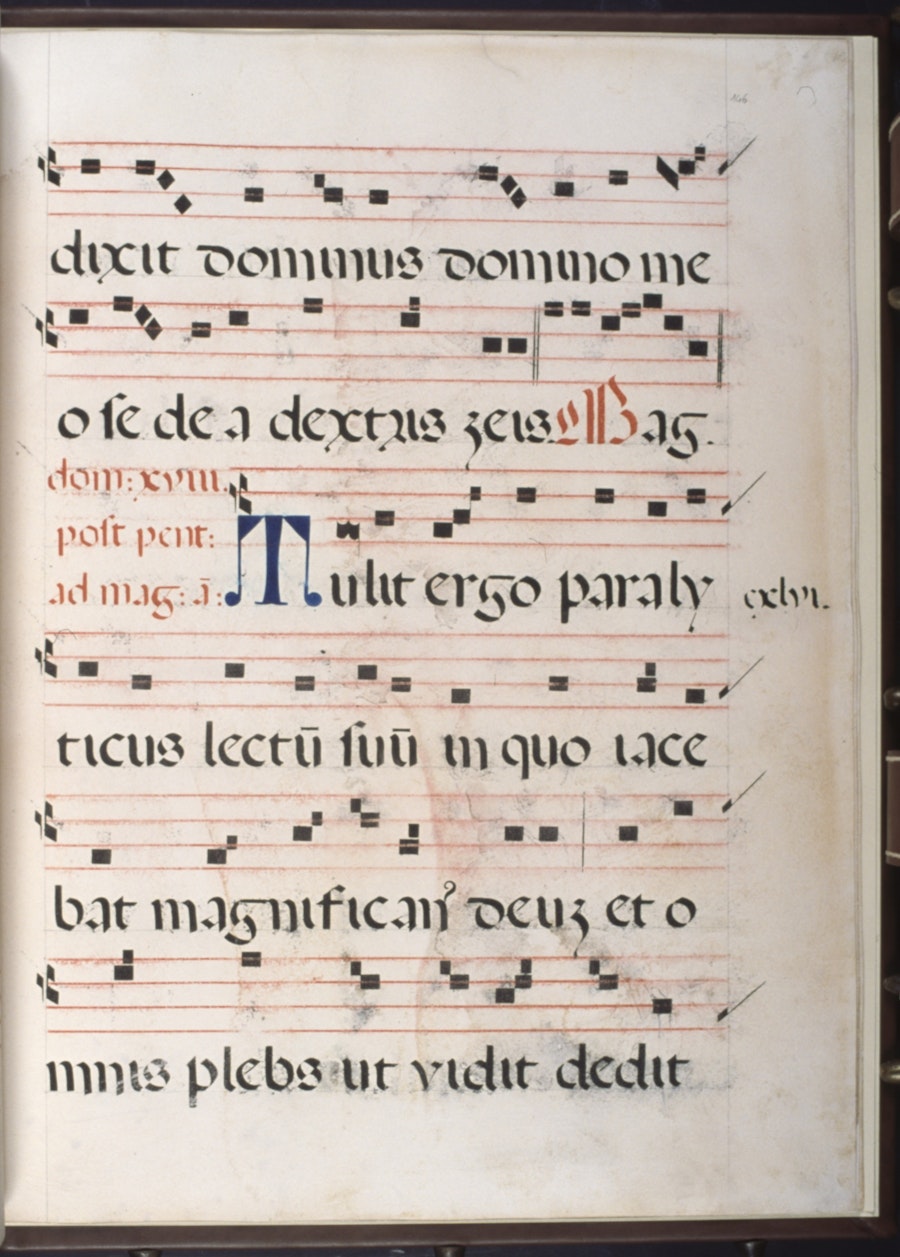 dixit dominus domino me
o sede a dextris zeis Mag.
dom: xviii.
post pent:
ad mag: ā:
Tulit ergo paraly
cxlvi.
ticus lectū suū in quo iace
bat magnifican⁹ deuz et o
mnis plebs ut vidit dedit